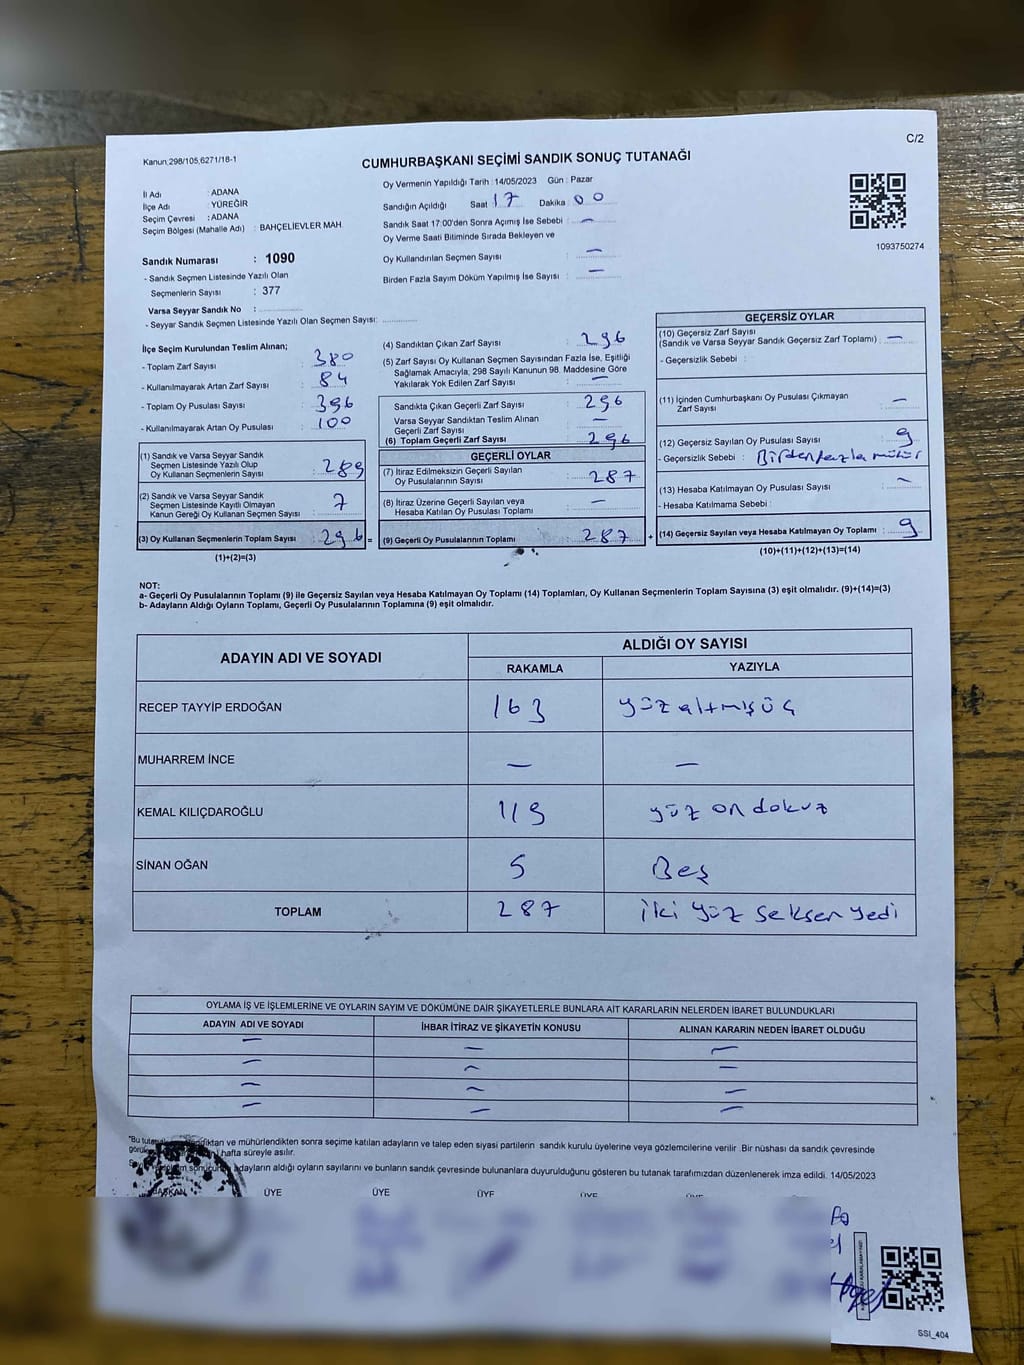 C/2
Kanun 298/105,6271/18-1
CUMHURBAŞKANI SEÇİMİ SANDIK SONUÇ TUTANAĞI
İl Adı : ADANA
İlçe Adı : YÜREĞİR
Seçim Çevresi : ADANA
Seçim Bölgesi (Mahalle Adı) : BAHÇELİEVLER MAH
Sandık Numarası : 1090
- Sandık Seçmen Listesinde Yazılı Olan
Seçmenlerin Sayısı : 377
Varsa Seyyar Sandık No :
- Seyyar Sandık Seçmen Listesinde Yazılı Olan Seçmen Sayısı:
Oy Vermenin Yapıldığı Tarih : 14/05/2023 Gün : Pazar
Sandığın Açıldığı Saat 17 Dakika 00
Sandık Saat 17:00'den Sonra Açımış İse Sebebi : —
Oy Verme Saati Bitiminde Sırada Bekleyen ve
Oy Kullandırılan Seçmen Sayısı : —
Birden Fazla Sayım Döküm Yapılmış İse Sayısı : —
1093750274
İlçe Seçim Kurulundan Teslim Alınan;
- Toplam Zarf Sayısı : 380
- Kullanılmayarak Artan Zarf Sayısı : 84
- Toplam Oy Pusulası Sayısı : 396
- Kullanılmayarak Artan Oy Pusulası : 100
(1) Sandık ve Varsa Seyyar Sandık
Seçmen Listesinde Yazılı Olup
Oy Kullanan Seçmenlerin Sayısı : 289
(2) Sandık ve Varsa Seyyar Sandık
Seçmen Listesinde Kayıtlı Olmayan
Kanun Gereği Oy Kullanan Seçmen Sayısı : 7
(3) Oy Kullanan Seçmenlerin Toplam Sayısı : 296 =
(1)+(2)=(3)
(4) Sandıktan Çıkan Zarf Sayısı : 296
(5) Zarf Sayısı Oy Kullanan Seçmen Sayısından Fazla İse, Eşitliği
Sağlamak Amacıyla, 298 Sayılı Kanunun 98. Maddesine Göre
Yakılarak Yok Edilen Zarf Sayısı : —
Sandıkta Çıkan Geçerli Zarf Sayısı : 296
Varsa Seyyar Sandıktan Teslim Alınan
Geçerli Zarf Sayısı : —
(6) Toplam Geçerli Zarf Sayısı : 296
GEÇERLİ OYLAR
(7) İtiraz Edilmeksizin Geçerli Sayılan
Oy Pusulalarının Sayısı : 287
(8) İtiraz Üzerine Geçerli Sayılan veya
Hesaba Katılan Oy Pusulası Toplamı : —
(9) Geçerli Oy Pusulalarının Toplamı : 287 +
GEÇERSİZ OYLAR
(10) Geçersiz Zarf Sayısı
(Sandık ve Varsa Seyyar Sandık Geçersiz Zarf Toplamı) : —
- Geçersizlik Sebebi :
(11) İçinden Cumhurbaşkanı Oy Pusulası Çıkmayan
Zarf Sayısı : —
(12) Geçersiz Sayılan Oy Pusulası Sayısı : 9
- Geçersizlik Sebebi : Birden fazla mühür
(13) Hesaba Katılmayan Oy Pusulası Sayısı : —
- Hesaba Katılmama Sebebi :
(14) Geçersiz Sayılan veya Hesaba Katılmayan Oy Toplamı : 9
(10)+(11)+(12)+(13)=(14)
NOT:
a- Geçerli Oy Pusulalarının Toplamı (9) ile Geçersiz Sayılan veya Hesaba Katılmayan Oy Toplamı (14) Toplamları, Oy Kullanan Seçmenlerin Toplam Sayısına (3) eşit olmalıdır. (9)+(14)=(3)
b- Adayların Aldığı Oyların Toplamı, Geçerli Oy Pusulalarının Toplamına (9) eşit olmalıdır.
ADAYIN ADI VE SOYADI ALDIĞI OY SAYISI
RAKAMLA YAZIYLA
RECEP TAYYİP ERDOĞAN 163 yüz altmış üç
MUHARREM İNCE — —
KEMAL KILIÇDAROĞLU 119 yüz on dokuz
SİNAN OĞAN 5 Beş
TOPLAM 287 iki yüz seksen yedi
OYLAMA İŞ VE İŞLEMLERİNE VE OYLARIN SAYIM VE DÖKÜMÜNE DAİR ŞİKAYETLERLE BUNLARA AİT KARARLARIN NELERDEN İBARET BULUNDUKLARI
ADAYIN ADI VE SOYADI İHBAR İTİRAZ VE ŞİKAYETİN KONUSU ALINAN KARARIN NEDEN İBARET OLDUĞU
— — —
— — —
— — —
— — —
"Bu ve mühürlendikten sonra seçime katılan adayların ve talep eden siyasi partilerin sandık kurulu üyelerine veya gözlemcilerine verilir. Bir nüshası da sandık çevresinde
hafta süreyle asılır.
adayların aldığı oyların sayılarını ve bunların sandık çevresinde bulunanlara duyurulduğunu gösteren bu tutanak tarafımızdan düzenlenerek imza edildi. 14/05/2023
BAŞKAN ÜYE ÜYE ÜYE ÜYE ÜYE
SSI_404